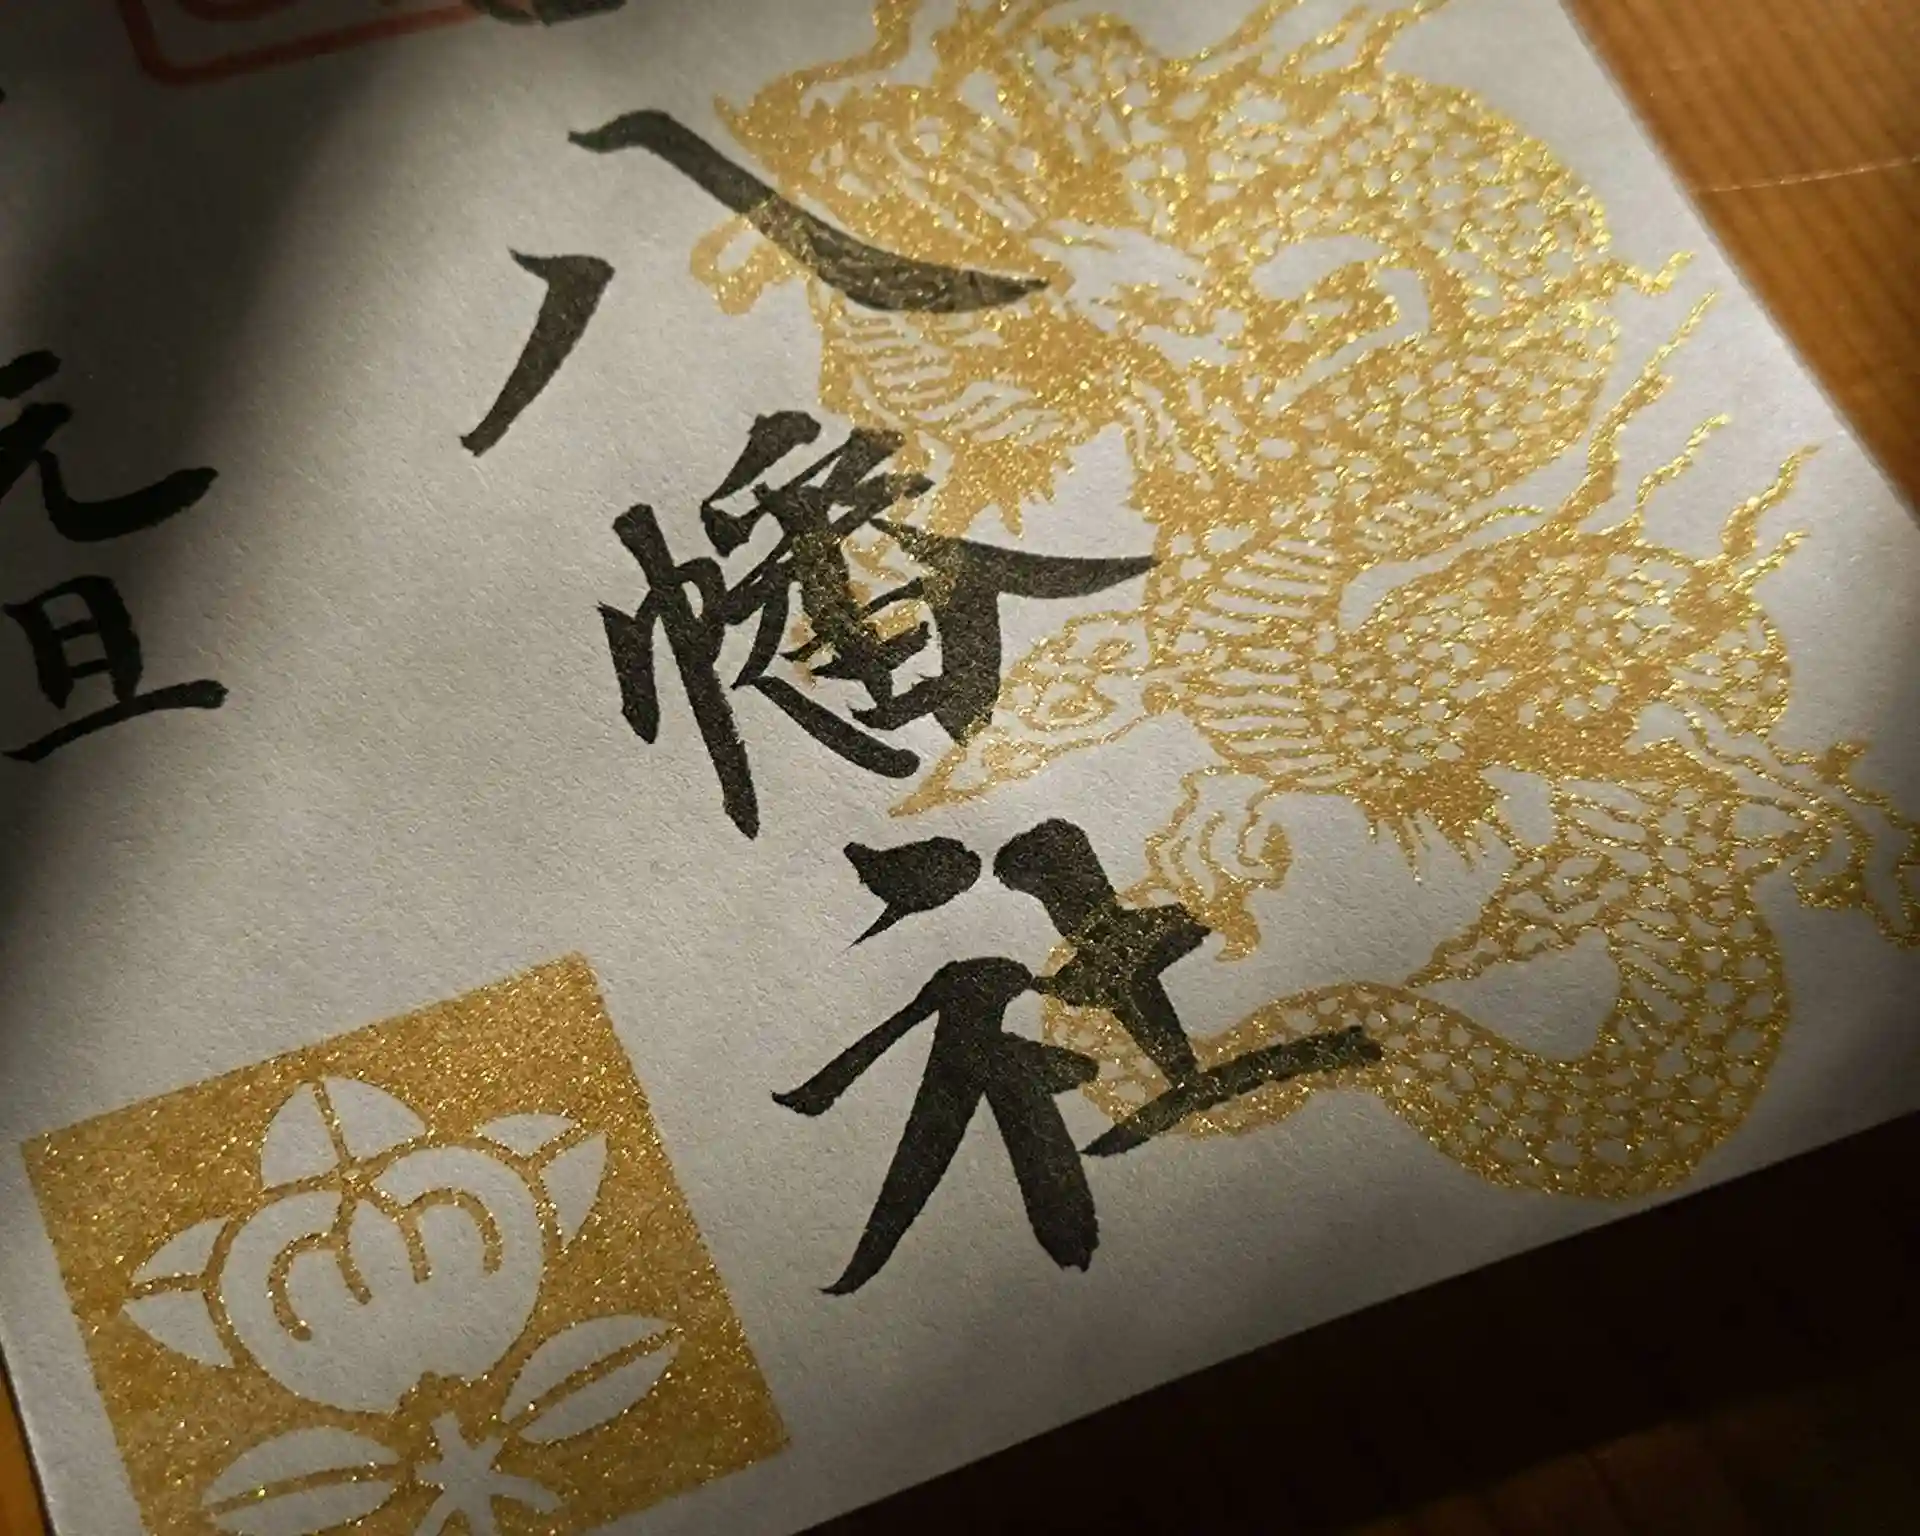 八幡社
元旦